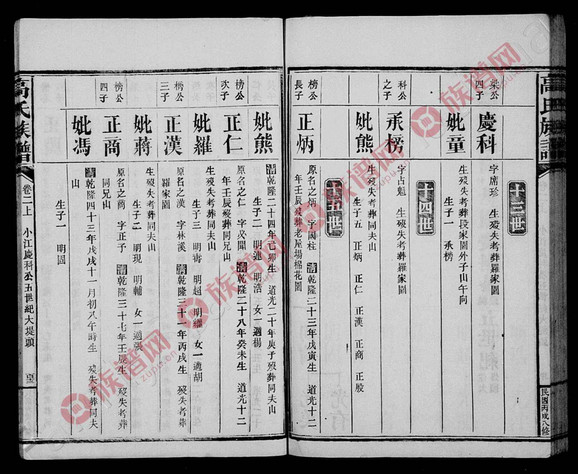 高氏族譜
民國丙戌八修
十三世
榮公四子
慶科
字席珍 生殁失考葬羅家園
妣童
生殁失考葬段家園外子山午向
生子一 承榜
十四世
科公之子
承榜
字占魁 生殁失考葬羅家園
妣熊
生殁失考葬同夫山
生子五 正炳 正仁 正漢 正商 正胶
十五世
榜公長子
正炳
原名之炳 字國柱 清乾隆二十三年戊寅生 道光十二年壬辰殁葬老屋場棉花園
榜公次子
正仁
原名之仁 字必聞 清乾隆二十八年癸未生 道光十二年壬辰殁葬同兄山
妣熊
清乾隆二十四年己卯生 道光二十年庚子殁葬同夫山
生子二 明連 明浩 女一適楊
榜公三子
正漢
原名之漢 字林漢 清乾隆三十一年丙戌生 殁失考葬同夫山
妣羅
生殁失考葬同夫山
生子三 明壽 明超 明繼 女一適胡
榜公四子
正商
原名之商 字正子 清乾隆三十七年壬辰生 殁失考葬同兄山
妣蔣
生殁失考葬同夫山
生子二 明現 明輔 女一適張
妣馮
清乾隆四十三年戊戌十一月初八午時生 殁失考葬同夫山
生子一 明國
高氏族譜
卷二上 小江慶科公五世紀大堤頭
族谱网
zupu.cn